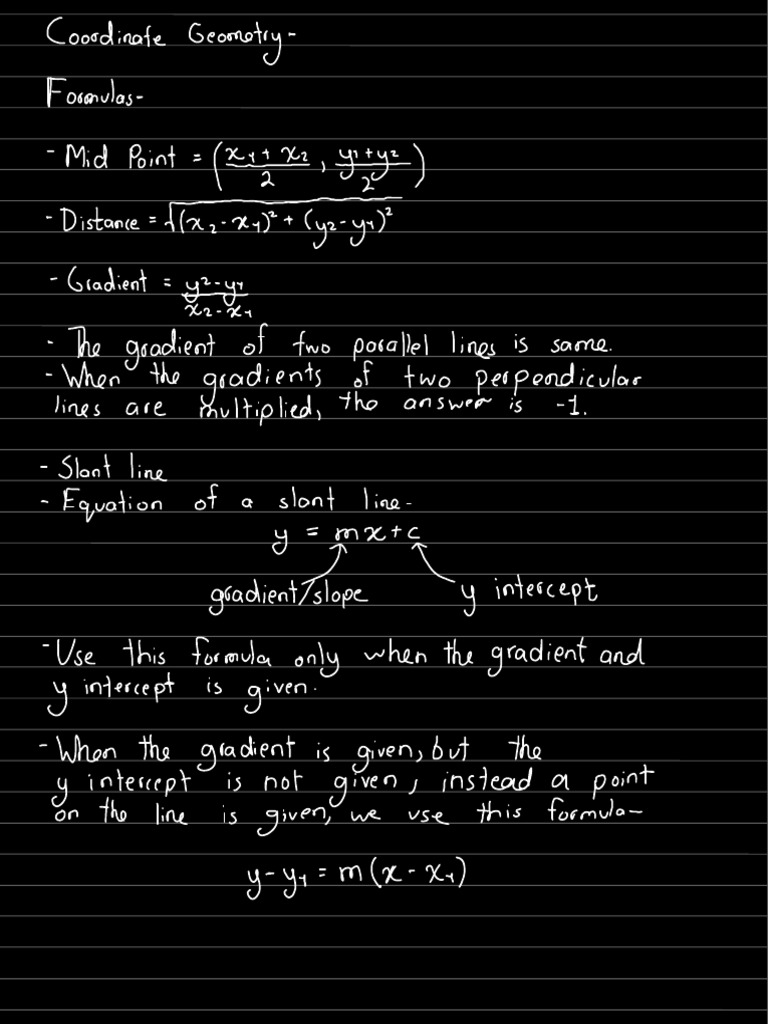 Coordinate Geometry-
Formulas-
- Mid Point = (x₁ + x₂ / 2 , y₁ + y₂ / 2)
- Distance = √(x₂ - x₁)² + (y₂ - y₁)²
- Gradient = y₂ - y₁ / x₂ - x₁
- The gradient of two parallel lines is same.
- When the gradients of two perpendicular
lines are multiplied, the answer is -1.
- Slant line
- Equation of a slant line-
y = mx + c
gradient/slope y intercept
- Use this formula only when the gradient and
y intercept is given.
- When the gradient is given, but the
y intercept is not given, instead a point
on the line is given, we use this formula-
y - y₁ = m(x - x₁)